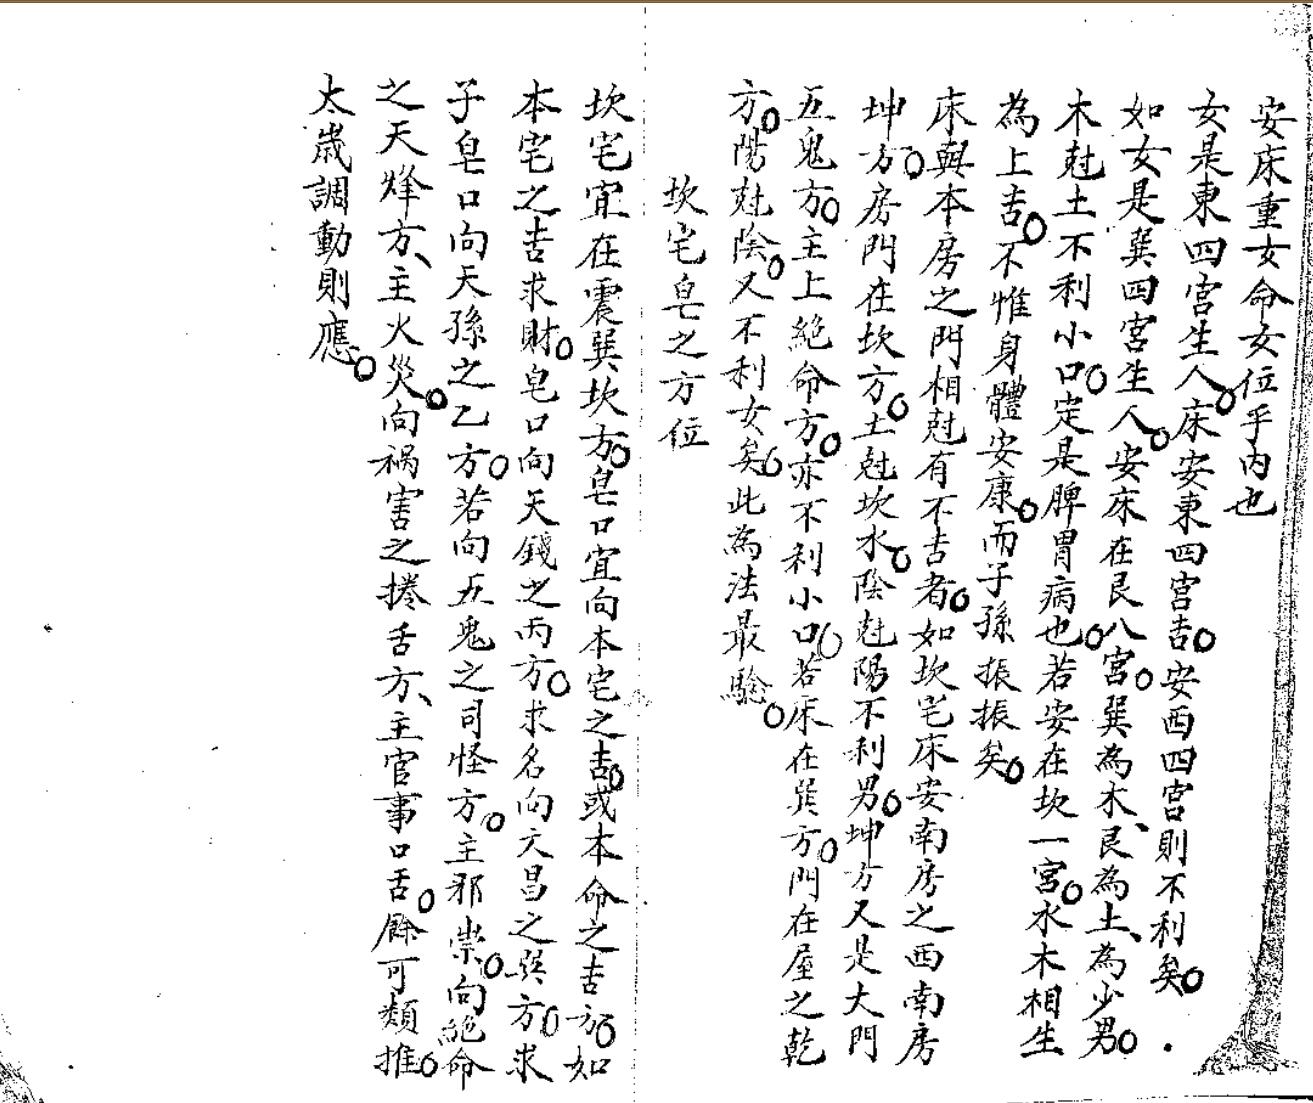 安床重女命女位乎内也
女是東四宮生人○床安東四宮吉○安西四宮則不利矣○
如女是巽四宮生人○安床在艮八宮○巽為木、艮為土、為少男○
木尅土不利小口○定是脾胃病也○若安在坎一宮○水木相生
為上吉○不惟身體安康○而子孫振振矣○
床與本房之門相尅有不吉者○如坎宅床安南房之西南房
坤方○房門在坎方○土尅坎水○陰尅陽不利男○坤方又是大門
五鬼方○主上絕命方○亦不利小口○若床在巽方○門在屋之乾
方○陽尅陰○又不利女矣○此為法最驗○
坎宅皂之方位
坎宅宜在震巽坎方○皂口宜向本宅之吉○或本命之吉方○如
本宅之吉求財○皂口向天錢之丙方○求名向文昌之巽方○求
子皂口向天孫之乙方○若向五鬼之司怪方○主邪崇○向絕命
之天烽方、主火災○向禍害之捲舌方、主官事口舌○餘可類推○
太歲調動則應○